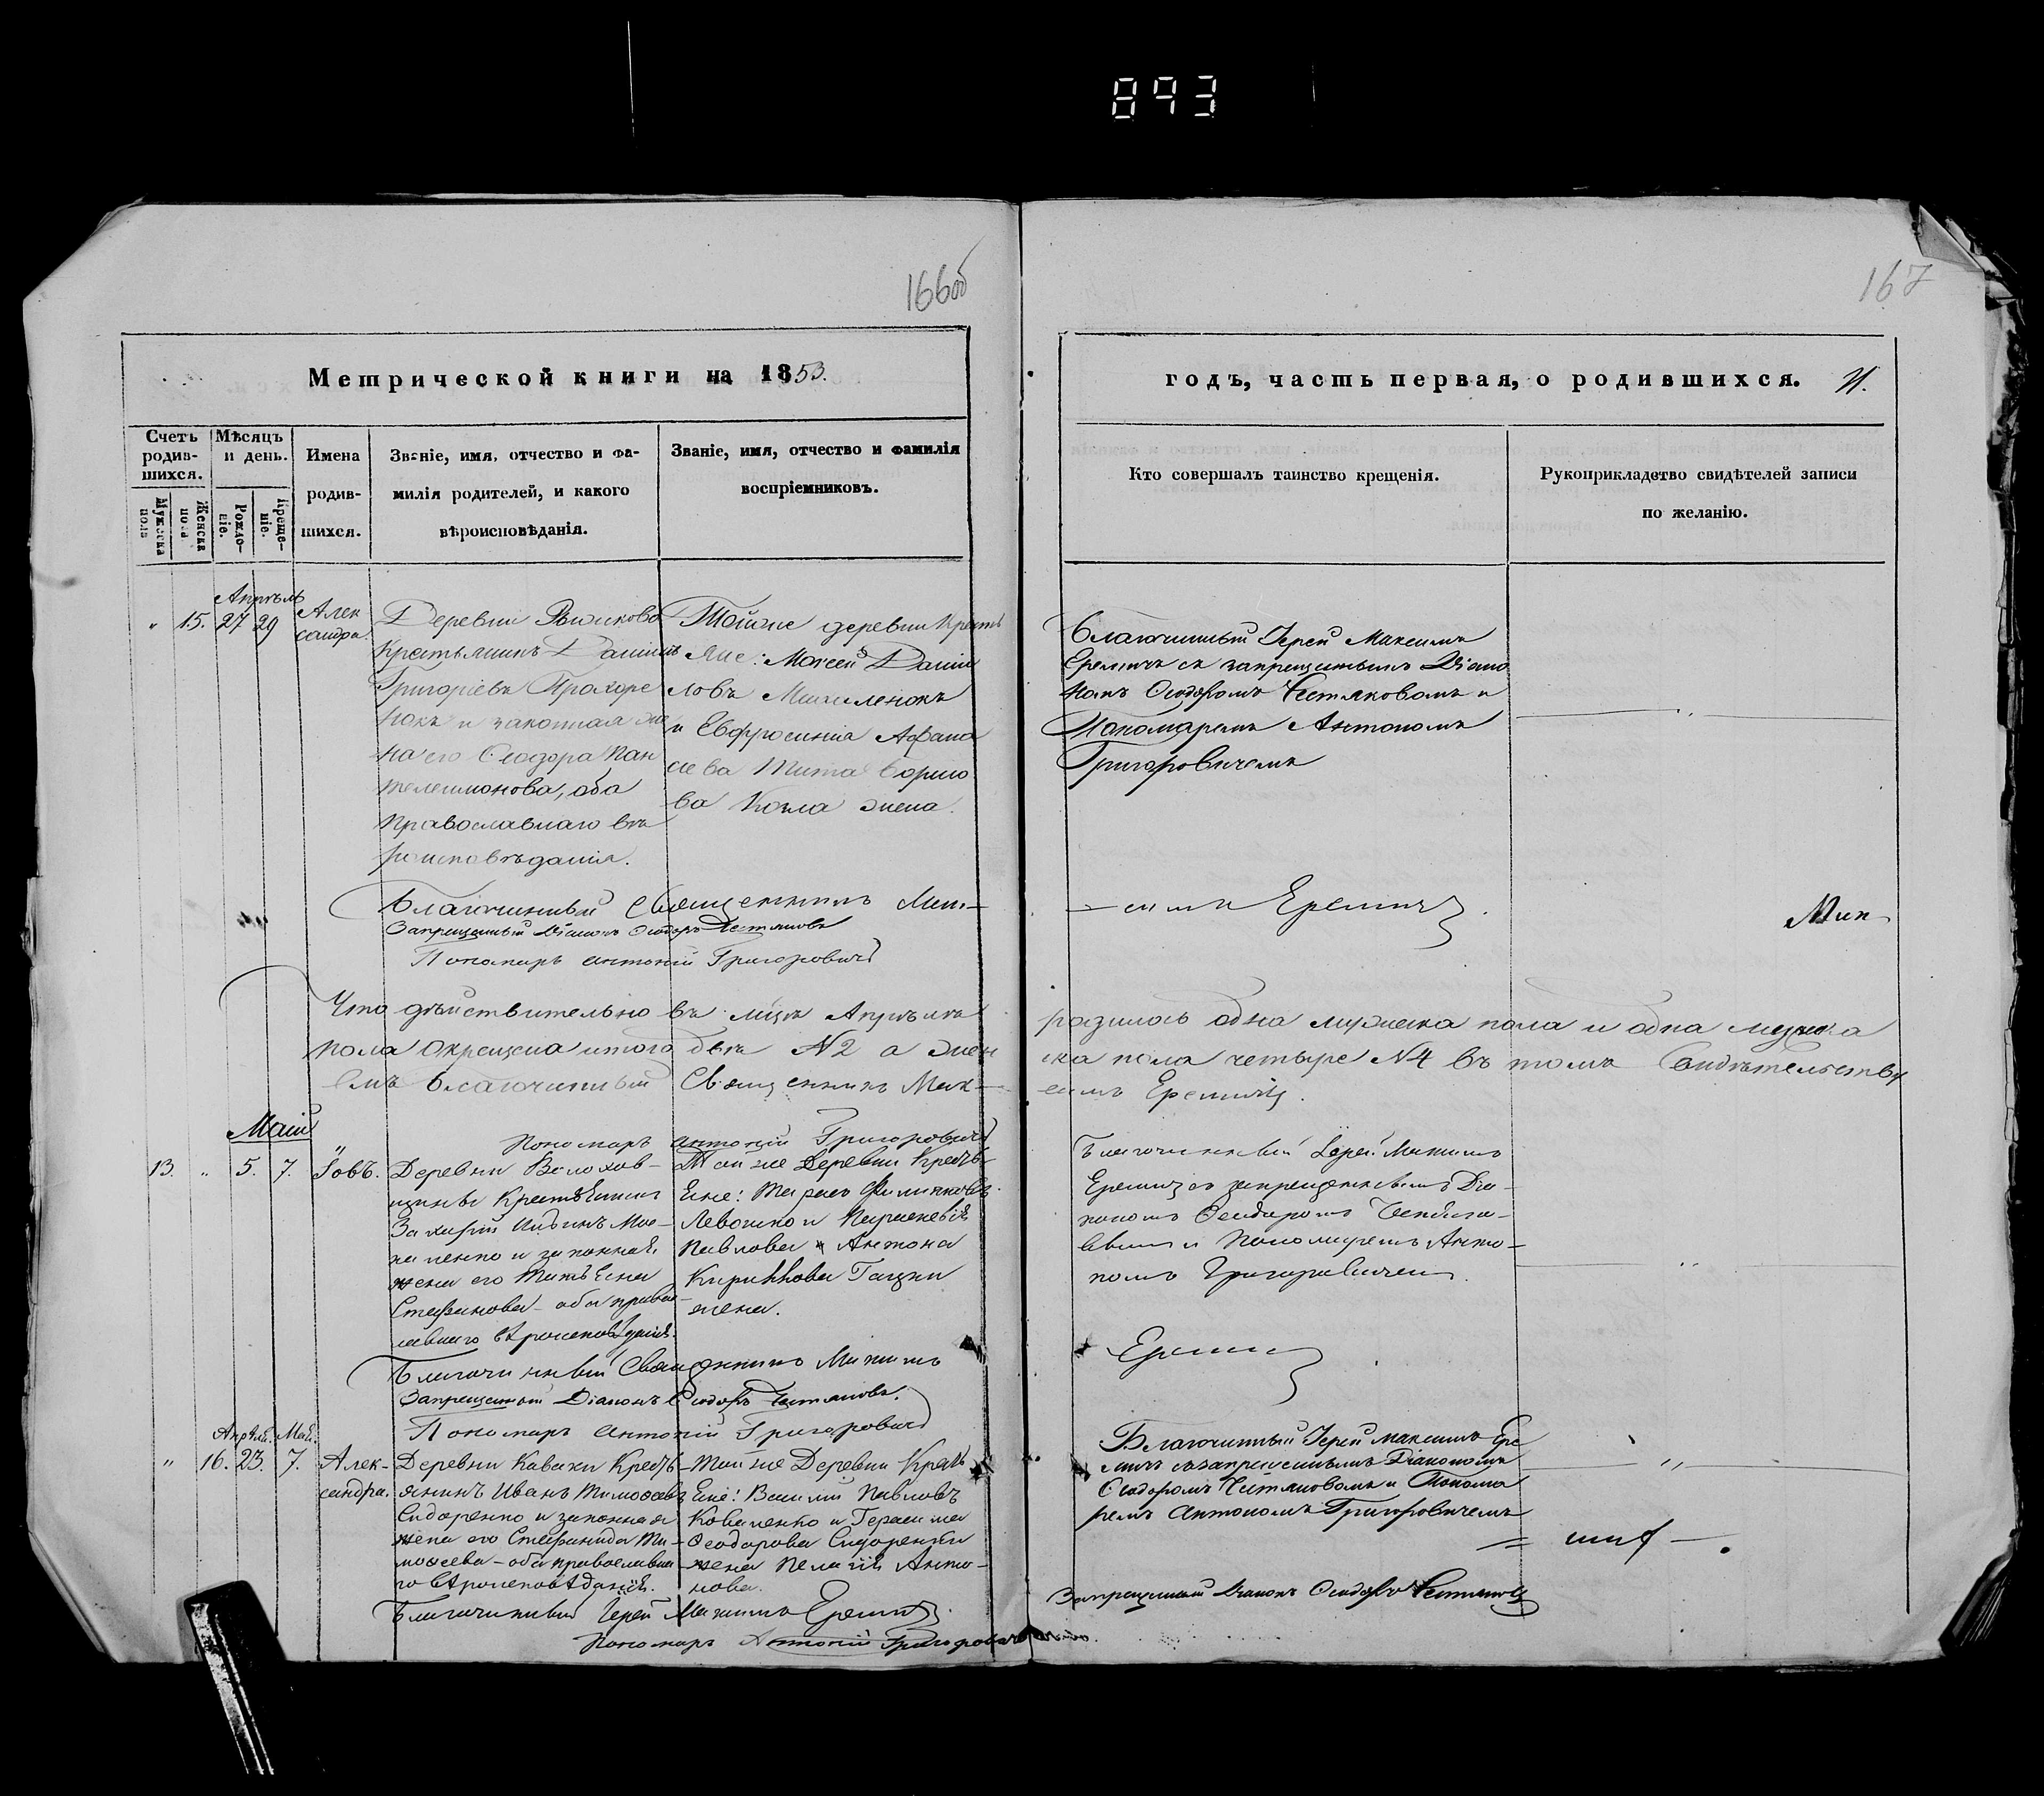 893
166об
167
Метрической книги на 1853.
годъ, часть первая, о родившихся.
Счетъ родив-шихся.
Мѣсяцъ и день.
Имена родив-шихся.
Званіе, имя, отчество и фа-
милія родителей, и какого
вѣроисповѣданія.
Званіе, имя, отчество и фамилія
воспріемниковъ.
Кто совершалъ таинство крещенія.
Рукоприкладство свидѣтелей записи
по желанію.
Мужеска пола
Женска пола
Рожде-ніе.
Креще-ніе.
Апрѣль
" 15. 27 29
Алек
сандра.
Деревни
Крестьянинъ Даніилъ
Григоріевъ Прохоре
нокъ и законная же
на его Ѳеодора Пан
телеимонова, оба
православнаго вѣ
роисповѣданія.
Тойже деревни Кресть
яне: Моисей Даніи
ловъ
и Евфросинія Афана
сіева Тита Борисо
ва жена.
Благочинный Іерей Максимъ
Еремичъ съ запрещеннымъ Діако
номъ Ѳеодоромъ Чистяковымъ и
Пономаремъ Антономъ
Григоровичемъ
Благочинный Священникъ Мак-
симъ Еремичъ.
Запрещенный Діаконъ Ѳеодоръ Чистяковъ
Пономарь Антоній Григоровичъ
Что дѣйствительно въ мцѣ Апрѣлѣ
родилось одна мужеска пола и одна
пола окрещено итого двѣ №2 а жен
ска пола четыре №4 въ томъ Свидѣтельству
емъ Благочинный Священникъ Мак-
симъ Еремичъ.
Пономарь Антоній Григоровичъ
Маій
13. " 5. 7. Іовъ.
Деревни Волохов-
щины Крестьянинъ
Захарій
и законная
жена его Татьяна
Стефанова - оба право
славнаго вѣроисповѣданія.
Тойже Деревни Кресть-
яне: Тарасъ Филипповъ
Левошко и Параскевія
Павлова Антона
Кириллова Гацки
жена.
Благочинный Іерей Максимъ
Еремичъ съ запрещеннымъ Діа-
кономъ Ѳеодоромъ Чистяко-
вымъ и Пономаремъ Анто-
номъ Григоровичемъ.
Благочинный Священникъ Максимъ
Еремичъ
Запрещенный Діаконъ Ѳеодоръ Чистяковъ.
Пономарь Антоній Григоровичъ
Апрѣля. Маія.
" 16. 23. 7. Алек-
сандра.
Деревни Каваки Кресть-
янинъ Иванъ Тимоѳеевъ
Сидоренко и законная
жена его Стефанида Ти-
моѳеева - оба православна
го вѣроисповѣданія.
Тойже Деревни Кресть
яне: Василій Павловъ
Коваленко и Герасима
Ѳеодорова Сидоренки
жена Пелагія Анто-
нова.
Благочинный Іерей Максимъ Ере
мичъ съ запрещеннымъ Діакономъ
Ѳеодоромъ Чистяковымъ и Понома
ремъ Антономъ Григоровичемъ
Благочинный Іерей Максимъ Еремичъ.
Запрещенный Діаконъ Ѳеодоръ Чистяковъ
Пономарь Антоній Григоровичъ